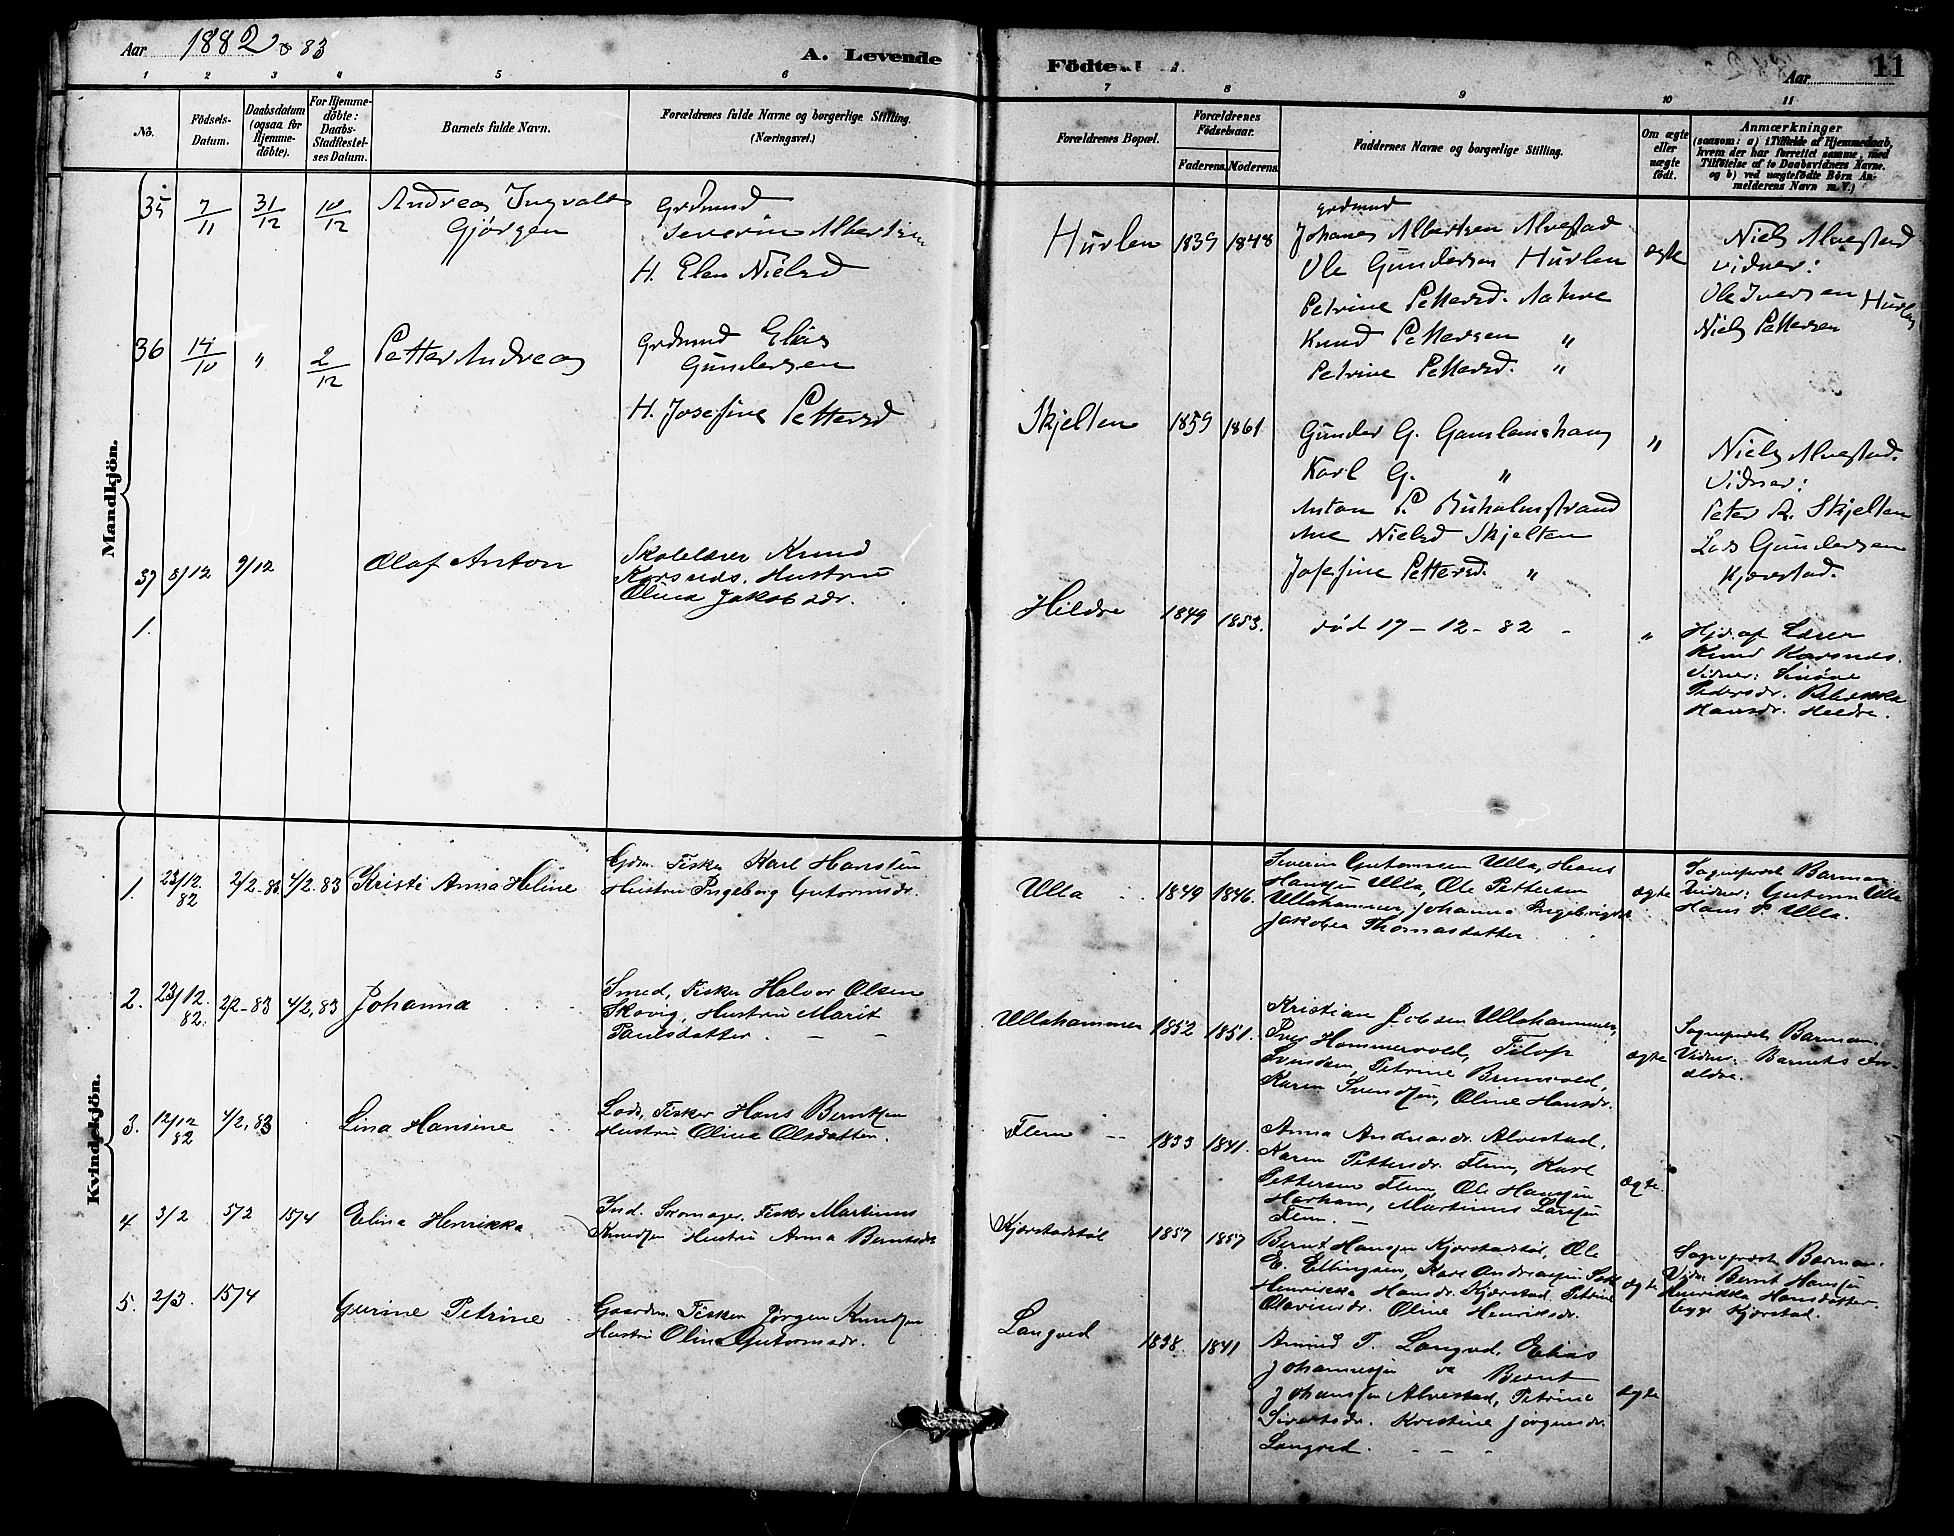 Aar 1882 & 83
A. Levende Födte.
Aar
11
1 2 3 4 5 6 7 8 9 10 11
No.
Födsels-Datum.
Daabsdatum (ogsaa for Hjemme-döbte).
For Hjemme-döbte: Daabs-Stadfestel-ses Datum.
Barnets fulde Navn.
Forældrenes fulde Navne og borgerlige Stilling. (Næringsvei.)
Forældrenes Bopæl.
Forældrenes Födselsaar.
Faderens. Moderens.
Faddernes Navne og borgerlige Stilling.
Om ægte eller uægte födt.
Anmærkninger
(saasom: a) i Tilfælde af Hjemmedaab, hvem der har forrettet samme, med Tilföielse af to Daabsvidners Navne. og b) ved uægtefödte Börn An-melderens Navn m. V.)
Mandkjön.
35 7/11 31/12 10/12 Andreas Ingvald
Gjørgen
Grdmand
Severin Albertsen
H. Elen Nielsd
Hurlen 1839 1848
Grdmand
Johanes Albertsen Alvestad
Ole Gundersen Hurlen
Petrine Pettersd.
Knud Pettersen "
Petrine Pettersd. "
ægte
Niels Alvestad
vidner:
Ole Iversen Hurlen
Niels Pettersen
36 14/10 " 2/12 Petter Andreas
Grdmand Elias
Gundersen
H. Josefine Pettersd
Skjelten 1859 1861
Gunder G. Gamlemshaug
Karl G. "
Anton P. Buholmstrand
Ane Nielsd Skjelten
Josefine Pettersd. "
"
Niels Alvestad.
Vidner:
Peter R. Skjelten
Lods Gundersen
Kjerstad.
37 8/12 9/12 Olaf Anton
1.
Skolelærer Knud
Korsnes. Hustru
Olina Jakobsdr.
Hildre 1849 1853.
død 17-12-82
"
Hjd. af Lærer
Knud Korsnes.
Vidner:
Pedersdr. Rebekka
Hansdr. Hildre.
Kvindekjön.
1. 23/12. 82 2/2-83 4/2-83 Kristi Anna Heline
Gdm. Fisker Karl Hansen
Hustru Ingeborg Gutormsdr.
Ulla 1849 1846.
Severin Gutormsen Ulla, Hans
Hansen Ulla, Ole Pettersen
Ullahammer, Johanna Ingebrigtsdr
Jakobea Thomasdatter
ægte
Sognepræst Barman.
Vidner: Gutorm Ulla
Hans P. Ulla.
2. 23/12. 82. 2/2-83 4/2,83 Johanna
Smed, Fisker Halvor Olsen
Skovig, Hustru Marit
Paulsdatter.
Ullahammer 1852 1851.
Kristian Jobsen Ullahammer,
Iver Hammervold, Filip
Svendsen, Petrine Brunvold,
Karen Svendsen, Oline Hansdr.
ægte
Sognepræst Barman.
Vidner: Barnets For-
ældre.
3. 12/12 82 4/2,83 Lina Hansine
Lods, Fisker Hans Berntsen
Hustru Olina Olsdatter.
Flem 1833 1841.
Anna Andreasdr. Alvestad,
Karen Pettersdr. Flem, Karl
Pettersen Flem, Ole Hansen
Harham, Martinus Larsen
Flem.
ægte.
4 3/2 5/2 15/4 Elina Henrikka
Ind. Skomager. Fisker Martinus
Knudsen Hustru Anna Berntsdr
Kjerstadstøl 1857 1857
Bernt Hansen Kjerstadstøl, Ole
E. Ellingsen, Karl Andreassen
Henrikka Hansdr. Kjerstad. Petrine
Olavinsdr. Oline Henriksdr.
ægte
Sognepræst Barman.
Vidn. Bernt Hansen
Henrikka Hansdatter
begge Kjerstad.
5. 2/3. 15/4 Gurine Petrine
Gaardm. Fisker Jörgen Knudsen
Hustru Olina Gutormsdr.
Langved 1838. 1841
Amund T. Langved, Elias
Johannesen og Bernt
Johansen Alvestad, Petrine
Sivertsdr. Kristine Jörgensdr.
Langved.
ægte